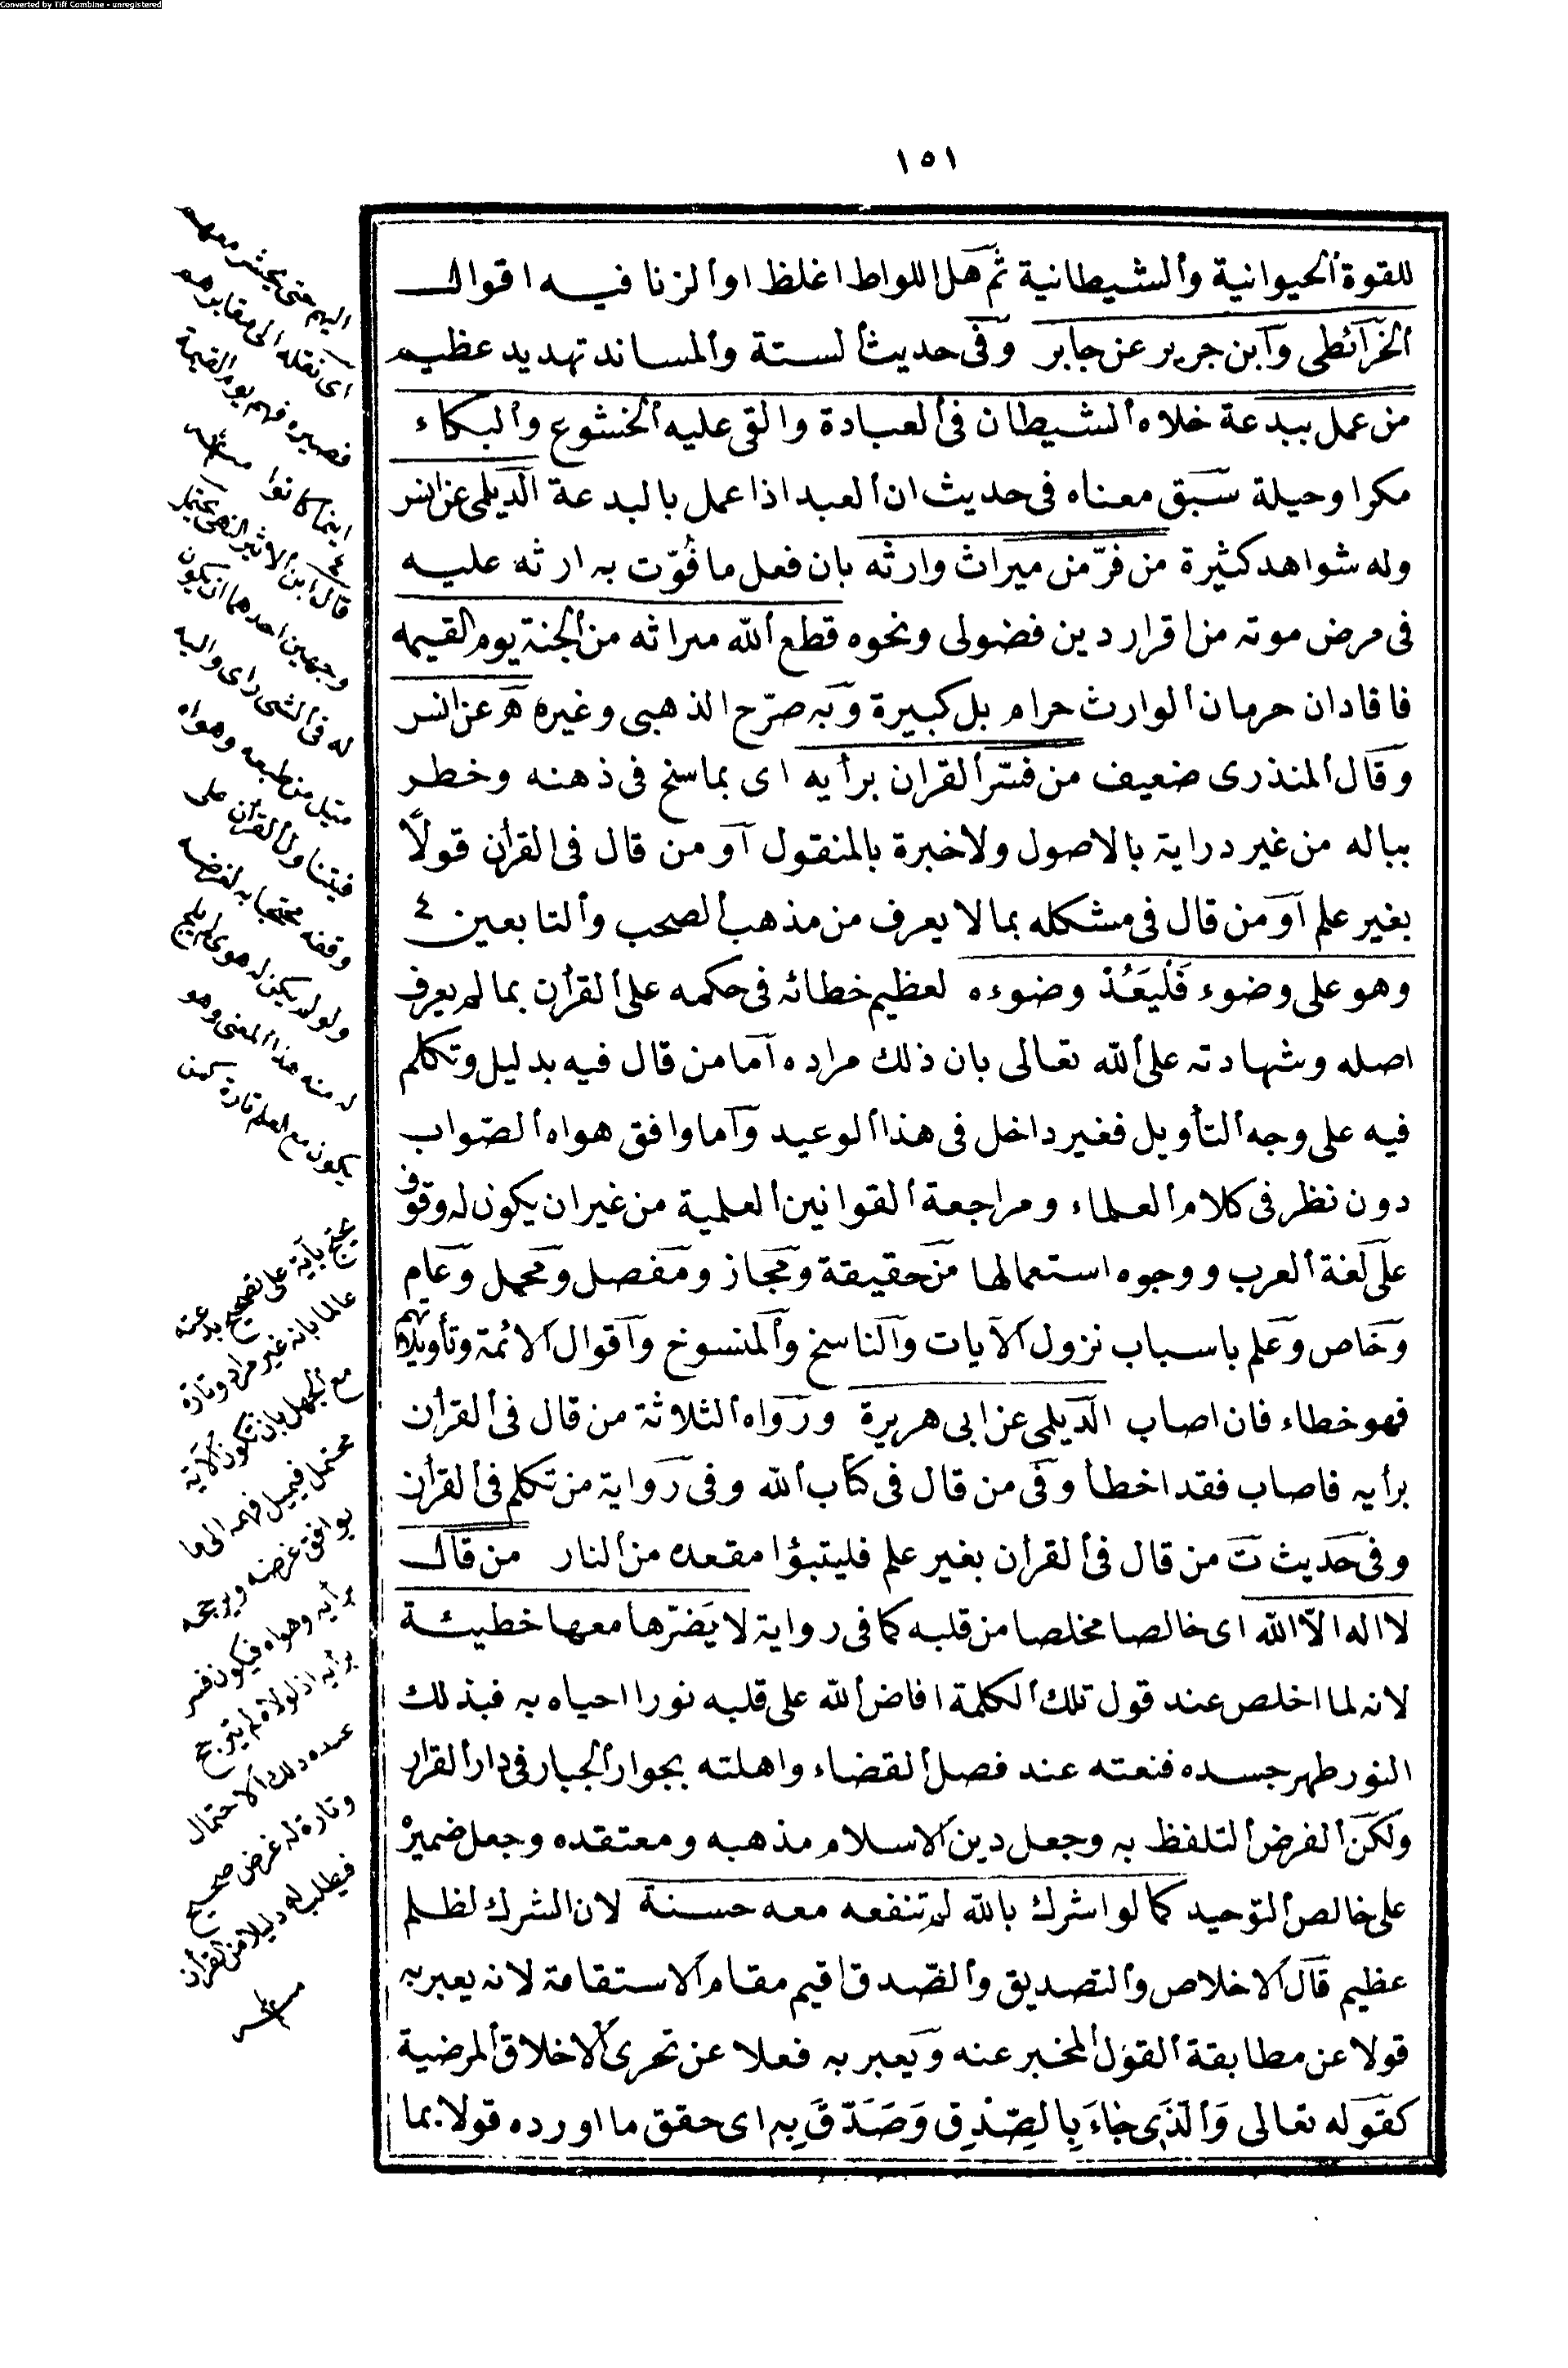 Converted by Tiff Combine - unregistered
١٥١
للقوة الحيوانية والشيطانية ثم هل اللواط اغلظ او الزنا فيه اقوال
الخرائطى وابن جرير عن جابر وفى حديث الستة والمساند تهديد عظيم
من عمل ببدعة خلاه الشيطان فى العبادة والقى عليه الخشوع والبكاء
مكرا وحيلة سبق معناه فى حديث ان العبد اذا عمل بالبدعة الديلمى عن انس
وله شواهد كثيرة من فرّ من ميراث وارثه بان فعل ما فُوّت به ارثه عليه
فى مرض موته من اقرار دين فضولى ونحوه قطع الله ميراثه من الجنة يوم القيمه
فافادان حرمان الوارث حرام بل كبيرة وبه صرّح الذهبى وغيره هَر عن انس
وقال المنذرى ضعيف من فسّر القران برأيه اى بما سنح فى ذهنه وخطر
بباله من غير دراية بالاصول ولا خبرة بالمنقول او من قال فى القرأن قولاً
بغير علم او من قال فى مشكله بما لا يعرف من مذهب الصحب والتابعين ٤
وهو على وضوء فَلْيَعُدْ وضوءه لعظيم خطائه فى حكمه على القرأن بما لم يعرف
اصله وشهادته على الله تعالى بان ذلك مراده اما من قال فيه بدليل وتكلم
فيه على وجه التأويل فغير داخل فى هذا الوعيد واما وافق هواه الصّواب
دون نظر فى كلام العلماء ومراجعة القوانين العلمية من غير ان يكون له وقوف
على لغة العرب ووجوه استعمالها من حقيقة ومجاز ومفصل ومجمل وعام
وخاص وعلم باسباب نزول الآيات والناسخ والمنسوخ واقوال الائمة وتأويلاتهم
فهو خطاء فان اصاب الديلمى عن ابى هريرة ورواه الثلاثة من قال فى القرأن
برأيه فاصاب فقد اخطأ وفى من قال فى كتاب الله وفى رواية من تكلم فى القرأن
وفى حديث ت من قال فى القرأن بغير علم فليتبؤا مقعده من النار من قال
لا اله الاّ الله اى خالصا مخلصا من قلبه كما فى رواية لا يَضرّها معها خطيئة
لانه لما اخلص عند قول تلك الكلمة افاض الله على قلبه نورا احياه به فبذلك
النور طهر جسده فنعته عند فصل القضاء واهلته بجوار الجبار فى دار القرار
ولكن الفرض التلفظ به وجعل دين الاسلام مذهبه ومعتقده وجعل ضميره
على خالص التوحيد كما لو اشرك بالله لم تنفعه معه حسنة لان الشرك لظلم
عظيم قال الاخلاص والتصديق والصّدق اقيم مقام الاستقامة لانه يعبر به
قولا عن مطابقة القول المخبر عنه ويعبر به فعلا عن تحرى الاخلاق المرضية
كقوله تعالى وَالَّذى جَاءَ بِالصِّدْقِ وَصَدَّقَ بِه اى حقق ما اورده قولا بما
اليهم حتى يحشر معهم
اى نقله الى مقابرهم
فصيره فهم يوم القيمة
اينما كانوا
٤ قال ابن الاثير النهى يحتمل
وجهين احدهما ان يكون
له فى الشى رأى واليه
ميل من طبعه وهواه
فيتناول القرأن على
وفقه محتجا به لغرضه
ولو لم يكن له هوى لم يلح
له منه هذا المعنى وهو
يكون مع العلم تارة كمن
يحتج بآية على تصحيح بدعته
عالما بانه غير مراد وتارة
مع الجهل بان تكون الآية
محتمل فيميل فهمه الى ما
يوافق غرضه ويرجحه
برأيه وهواه فيكون فسر
برأيه اذ لولاه لم يترجح
عنده ذلك الاحتمال
وتارة له غرض صحيح
فيطلب له دليلا من القرأن